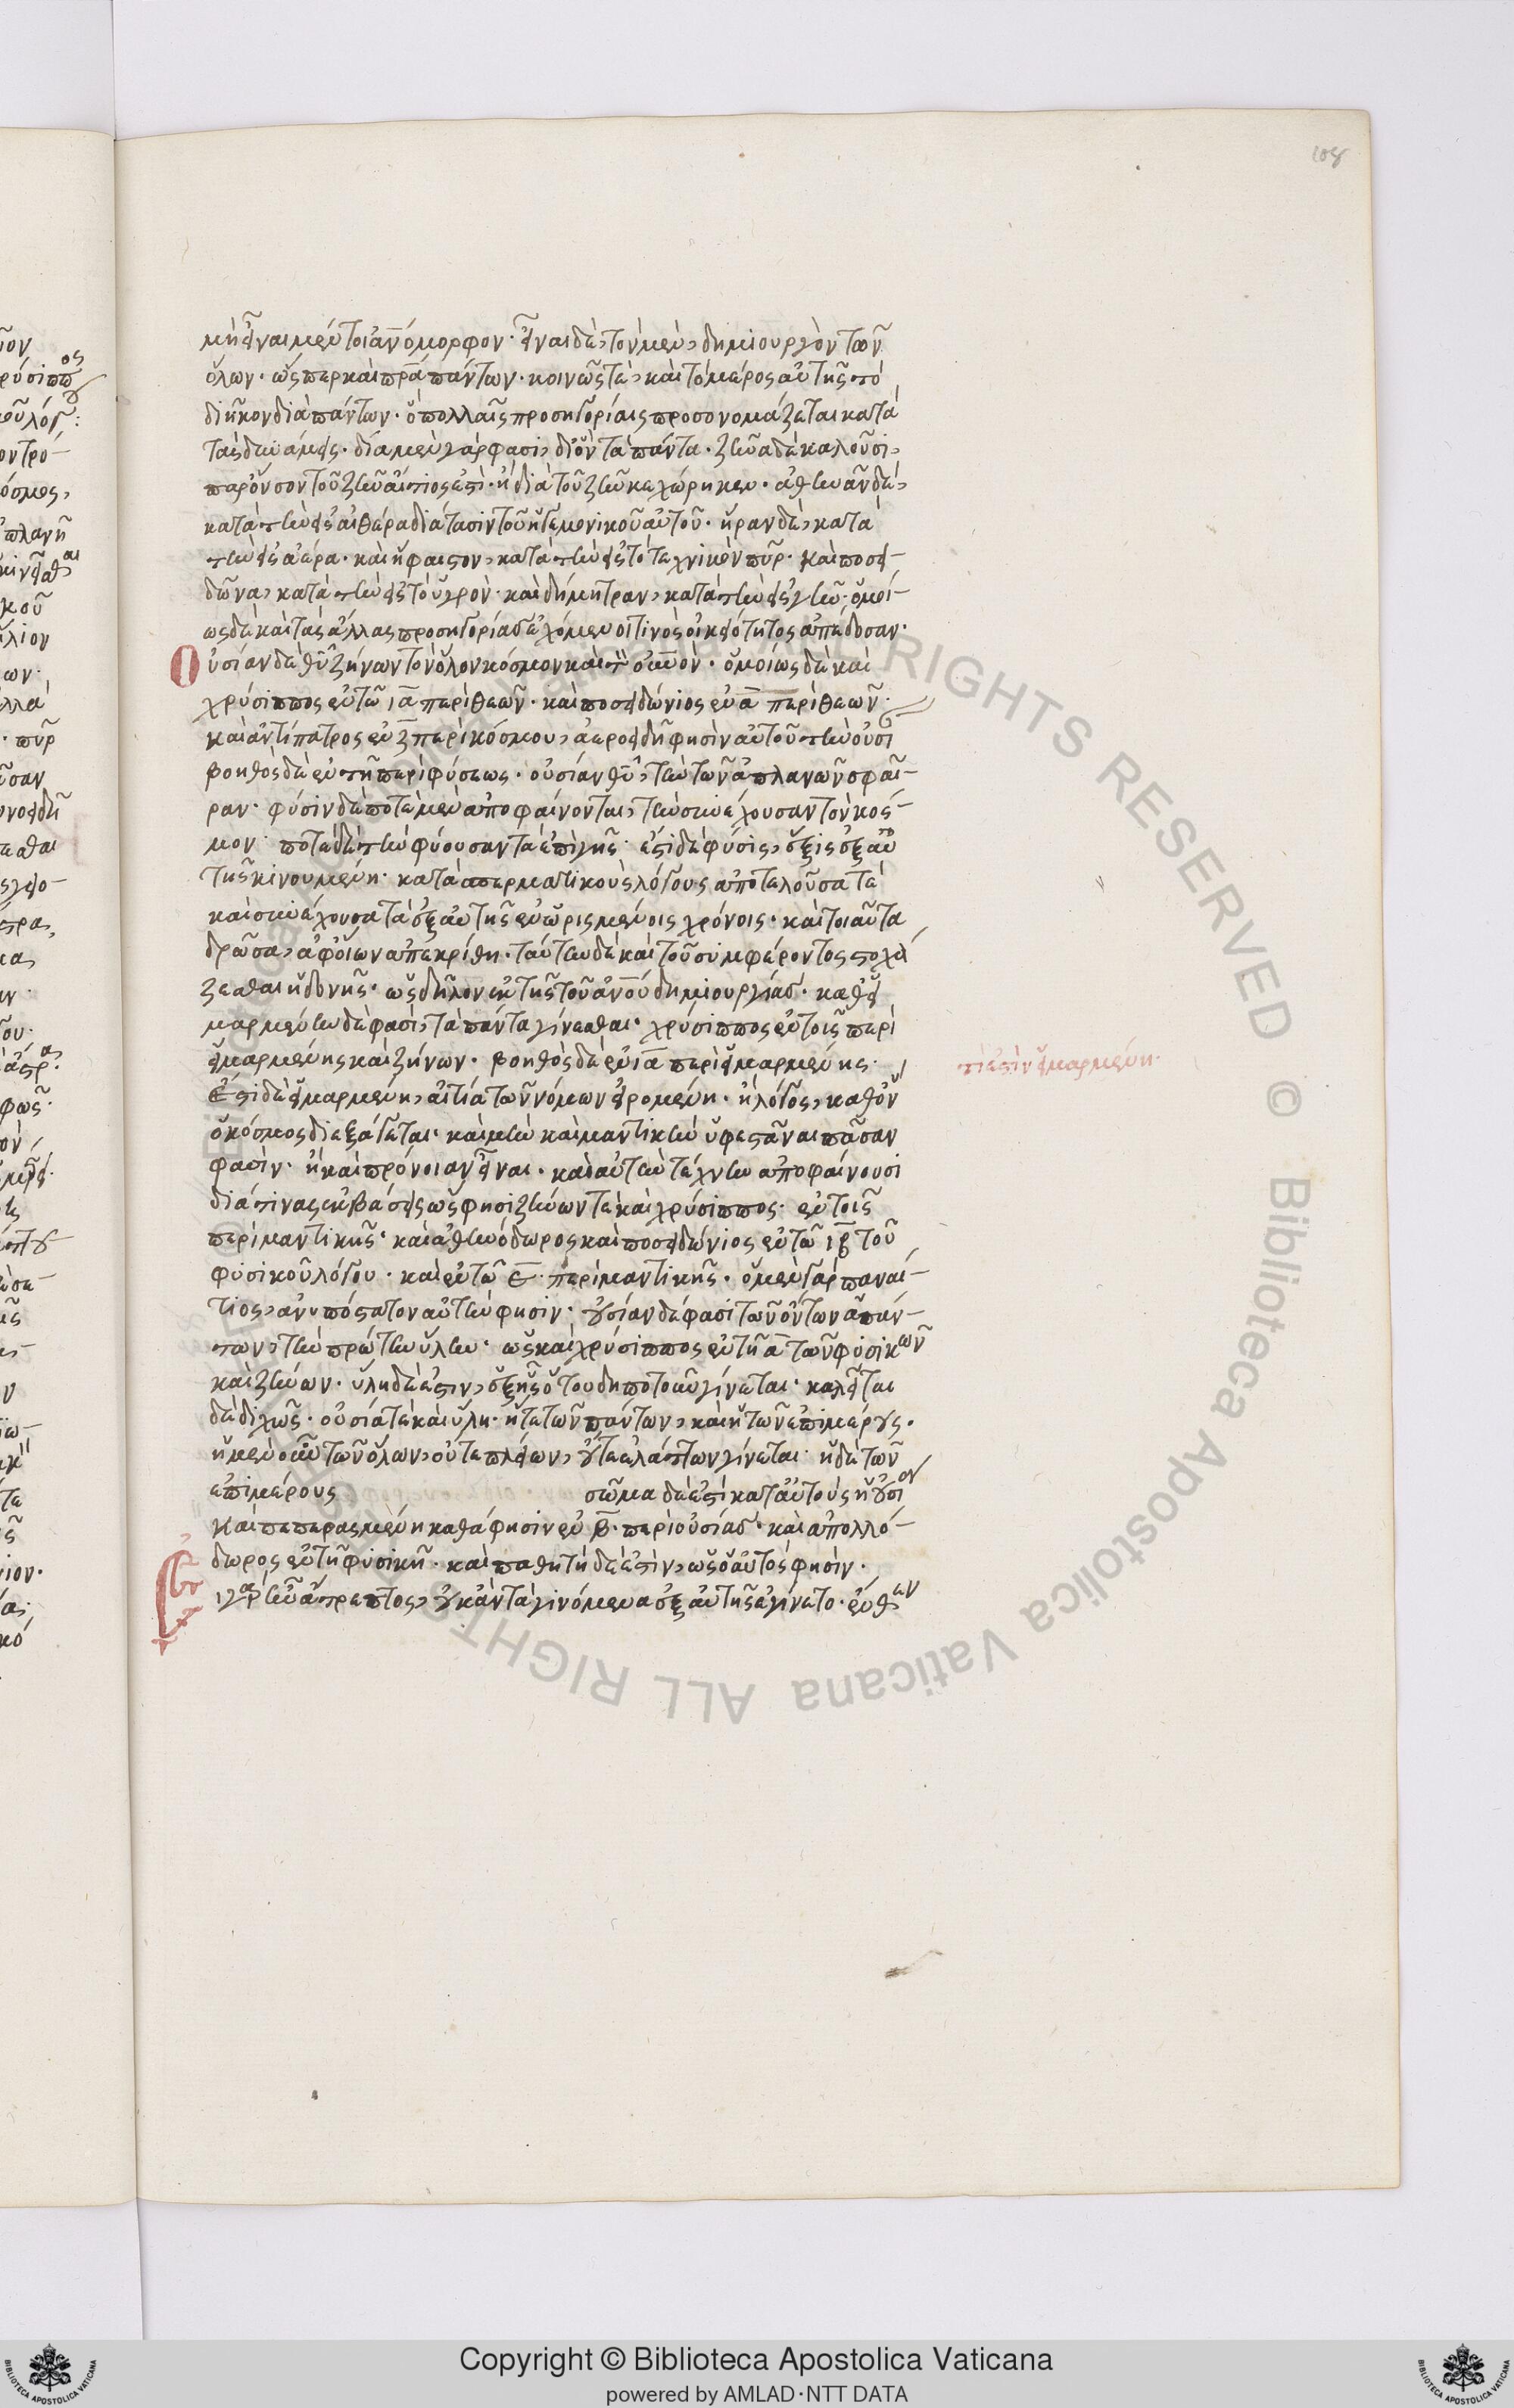 108
μὴ εἶναι μέν τοι ἀν̅ο̅μορφον· εἶναι δὲ, τὸν μὲν, δημιουργὸν τῶν
ὅλων· ὥσπερ καὶ πρ̅α πάντων· κοινῶς τὲ, καὶ τὸ μέρος αὐτῆς τὸ
διῆκον διὰ πάντων· ὃ πολλαῖς προσηγορίαις προσονομάζεται κατὰ
τὰς δυνάμεις· δία μὲν γάρ φασι, δι' ὃν τὰ πάντα· ζῆνα δὲ καλοῦσι,
παρόσον τοῦ ζῆν αἴτιός ἐστι· ἢ διὰ τοῦ ζῆν κεχώρηκεν· ἀθηνᾶν δὲ,
κατὰ τὴν εἰς αἰθέρα διάτασιν τοῦ ἡγεμονικοῦ αὐτοῦ· ἥραν δὲ, κατὰ
τὴν εἰς ἀέρα· καὶ ἥφαιστον, κατὰ τὴν εἰς τὸ τεχνικὸν πῦρ· καὶ ποσει-
δῶνα, κατὰ τὴν εἰς τὸ ὑγρόν· καὶ δήμητραν, κατὰ τὴν εἰς γῆν· ὁμοί-
ως δὲ καὶ τὰς ἄλλας προσηγορίας ἐχόμενοί τινος οἰκειότητος ἀπέδοσαν·
Οὐσίαν δὲ θῦ ζήνων τὸν ὅλον κόσμον καὶ τὸν οὐνόν· ὁμοίως δὲ καὶ
χρύσιππος ἐν τῶ ι̅α̅ περὶ θεῶν· καὶ ποσειδώνιος ἐν α̅ περὶ θεῶν·
καὶ ἀντίπατρος ἐν ζ̅ περὶ κόσμου, ἀεροειδῆ φησὶν αὐτοῦ τὴν οὐσί
βοηθὸς δὲ ἐν τῆ περὶ φύσεως· οὐσίαν θῦ, τὴν τῶν ἀπλανῶν σφαῖ-
ραν· φύσιν δὲ ποτὲ μὲν ἀποφαίνονται, τὴν συνέχουσαν τὸν κόσ-
μον· ποτὲ δὲ τὴν φύουσαν τὰ ἐπὶ γῆς· ἔστι δὲ φύσις, ἕξις ἐξ αὑ
τῆς κινουμένη· κατὰ σπερματικοὺς λόγους ἀποτελοῦσα τὲ
καὶ συνέχουσα τὰ ἐξ αὐτῆς ἐν ὡρισμένοις χρόνοις· καὶ τοιαῦτα
δρῶσα, ἀφ' οἵων ἀπεκρίθη· ταύτην δὲ καὶ τοῦ συμφέροντος στοχά
ζεσθαι ἡδονῆς· ὡς δῆλον ἐκ τῆς τοῦ ἀν̅ου δημιουργίας· καθ' εἱ
μαρμένην δέ φασι, τὰ πάντα γίνεσθαι· χρύσιππος ἐν τοῖς περὶ
εἱμαρμένης καὶ ζήνων· βοηθὸς δὲ ἐν ι̅α̅ περὶ εἱμαρμένης·
τί ἐστιν εἱμαρμένη·
Ἔστι δὲ εἱμαρμένη, αἰτία τῶν νόμων εἰρομένη· ἢ λόγος, καθ' ὃν
ὁ κόσμος διεξάγεται· καὶ μὴν καὶ μαντικὴν ὑφεστάναι πᾶσαν
φασὶν· ἢ καὶ πρόνοιαν εἶναι· καὶ αὐτὴν τέχνην ἀποφαίνουσι
διά τινας ἐκβάσεις ὥς φησι ζήνων τὲ καὶ χρύσιππος· ἐν τοῖς
περὶ μαντικῆς· καὶ ἀθηνόδωρος καὶ ποσειδώνιος ἐν τῶ ι̅β̅ τοῦ
φυσικοῦ λόγου· καὶ ἐν τῶ ε̅· περὶ μαντικῆς· ὁ μὲν γὰρ παναί-
τιος, ἀνυπόστατον αὐτήν φησιν· οὐσίαν δέ φασι τῶν ὄντων ἁπάν-
των, τὴν πρώτην ὕλην· ὡς καὶ χρύσιππος ἐν τῆ α̅ τῶν φυσικῶν
καὶ ζήνων· ὕλη δέ ἐστιν, ἐξ ἧς ὁτουδηποτοῦν γίνεται· καλεῖται
δὲ διχῶς· οὐσία τὲ καὶ ὕλη· ἥ τε τῶν πάντων, καὶ ἡ τῶν ἐπὶ μέρους·
ἡ μὲν οὖν τῶν ὅλων, οὔτε πλείων, οὔτε ἐλάττων γίνεται· ἡ δὲ τῶν
ἐπὶ μέρους σῶμα δέ ἐστι κατ' αὐτοὺς ἡ οὐσί
καὶ πεπερασμένη καθά φησιν ἐν β̅· περὶ οὐσίας· καὶ ἀπολλό-
δωρος ἐν τῆ φυσικῆ· καὶ παθητὴ δέ ἐστιν, ὡς ὁ αὐτός φησιν·
εἰ γὰρ ἦν ἄτρεπτος, οὐκ ἂν τὰ γινόμενα ἐξ αὐτῆς ἐγίνετο· ἔνθεν